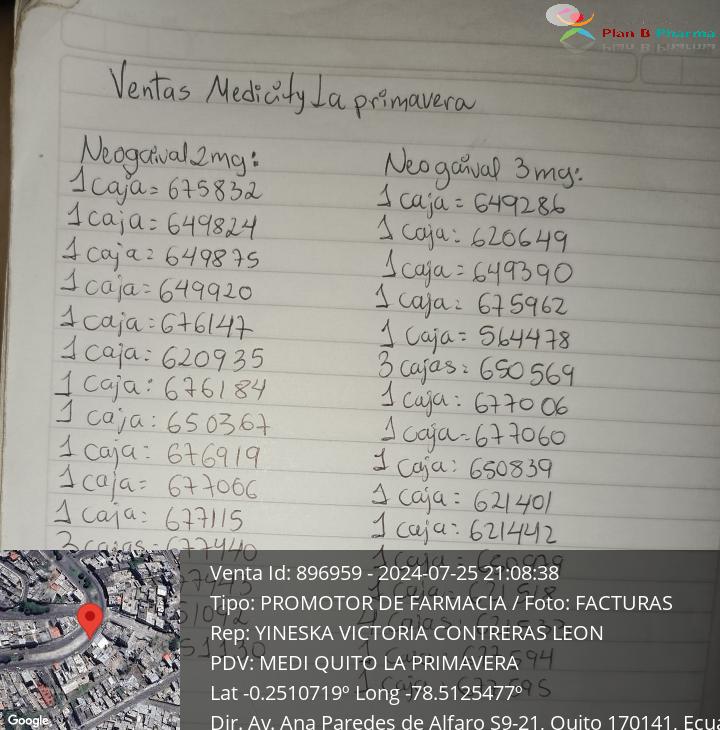 Plan B Pharma
Ventas Medicity La primavera
Neogaival 2mg:
1 caja = 675832
1 caja = 649824
1 caja = 649875
1 caja = 649920
1 caja = 676147
1 caja: 620935
1 caja: 676184
1 caja: 650367
1 caja: 676919
1 caja = 677066
1 caja: 677115
3 cajas = 677440
Neogaival 3mg:
1 caja = 649286
1 caja: 620649
1 caja = 649390
1 caja: 675962
1 caja = 564478
3 cajas: 650569
1 caja: 677006
1 caja = 677060
1 caja: 650839
1 caja: 621401
1 caja: 621442
1 caja:
Venta Id: 896959 - 2024-07-25 21:08:38
Tipo: PROMOTOR DE FARMACIA / Foto: FACTURAS
Rep: YINESKA VICTORIA CONTRERAS LEON
PDV: MEDI QUITO LA PRIMAVERA
Lat -0.2510719º Long -78.5125477º
Dir. Av. Ana Paredes de Alfaro S9-21, Quito 170141, Ecua
Google